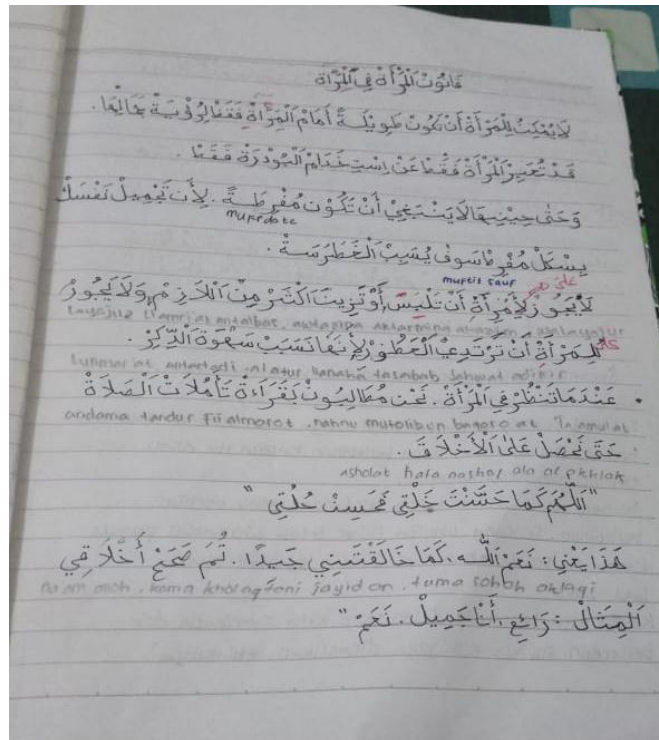 قَانُوْنُ الْمَرْأَةْ فِي الْمِرْآة
لَا يُمْكِنُ لِلْمَرْأَةْ أَنْ تَكُوْنَ طَوِيْلَةً أَمَامَ الْمِرْآةْ فَقَطْ لِرُؤْيَةْ
قَدْ تُعَبِّرُ الْمَرْأَةْ فَقَطْ عَنْ اِسْتِخْدَامْ الْبُودْرَةْ فَقَطْ .
وَحَتَى حِيْنِهَا لَا يَنْبَغِيْ أَنْ تَكُوْنَ مُفْرِطَةً . لِأَن تَجْمِيْلْ نَفْسَكْ
mufridotc
بِشَكْلْ مُفْرِطْ سَوْفَ يُسَبِبْ الْغَطْرَسَةْ .
muftit sauf
على
لَا يَجُوْزُ لِأَمْرَأَةْ أَنْ تَلْبَسَ أَوْ تَزِيْنَ اَكْثَرْ مِنْ اللَّازِمْ وَلَا يَجُوْزُ
layajuz antalbas,
لِلْمَرْأَةْ أَنْ تَرْتَدِيْ الْعُطُوْر لِأَنَهَا تَسَبَبْ شَهْوَةْ الذَّكَرْ .
tasabab sahwat
• عَنْدَمَا تَنْظُرْ فِي الْمَرْأَةْ . نَحْنُ مُطَالِبُوْنْ بَقَرَاءَةْ تَأَمُلَاتْ الْصَلَاةْ
andama tandur Fii almorot . nahnu mutolibun
حَتَى نَحْصَلْ عَلَى الْأَخْلَاقَ .
asholat hata nashal ala al akhlak
"اَللَّهُمَ كَمَا حَسَّنْتَ خَلْقِي فَحَسِنْ خُلُقِي"
هَذَا يَعْنِي : نَعَمْ اَللَّه . كَمَا خَالَقْتَنِي جَيِدًا . ثُمَ صَحَحْ أَخْلَاقِي
naam alloh . kama kholaqtani jayidan . tuma sohoh ahlaqi
اَلْمِثَالْ : رَائِعْ . أَنَا جَمِيْلْ . نَعَمْ "